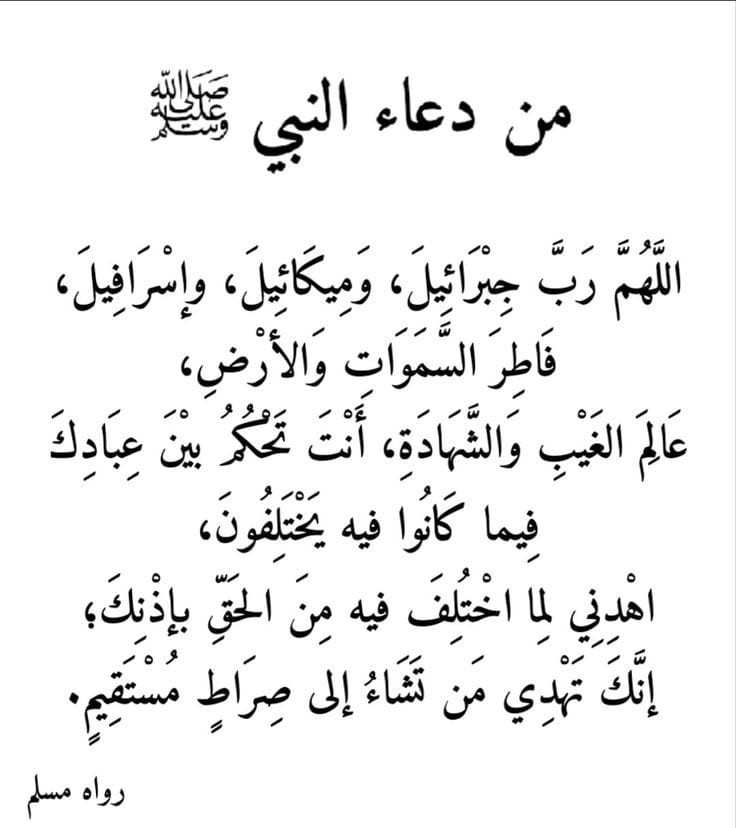 من دعاء النبي ﷺ
اللَّهُمَّ رَبَّ جِبْرَائِيلَ، وَمِيكَائِيلَ، وإِسْرَافِيلَ،
فَاطِرَ السَّمَوَاتِ وَالأرْضِ،
عَالِمَ الغَيْبِ وَالشَّهَادَةِ، أَنْتَ تَحْكُمُ بيْنَ عِبَادِكَ
فِيما كَانُوا فيه يَخْتَلِفُونَ،
اهْدِنِي لِما اخْتُلِفَ فيه مِنَ الحَقِّ بإذْنِكَ؛
إنَّكَ تَهْدِي مَن تَشَاءُ إلى صِرَاطٍ مُسْتَقِيمٍ.
رواه مسلم